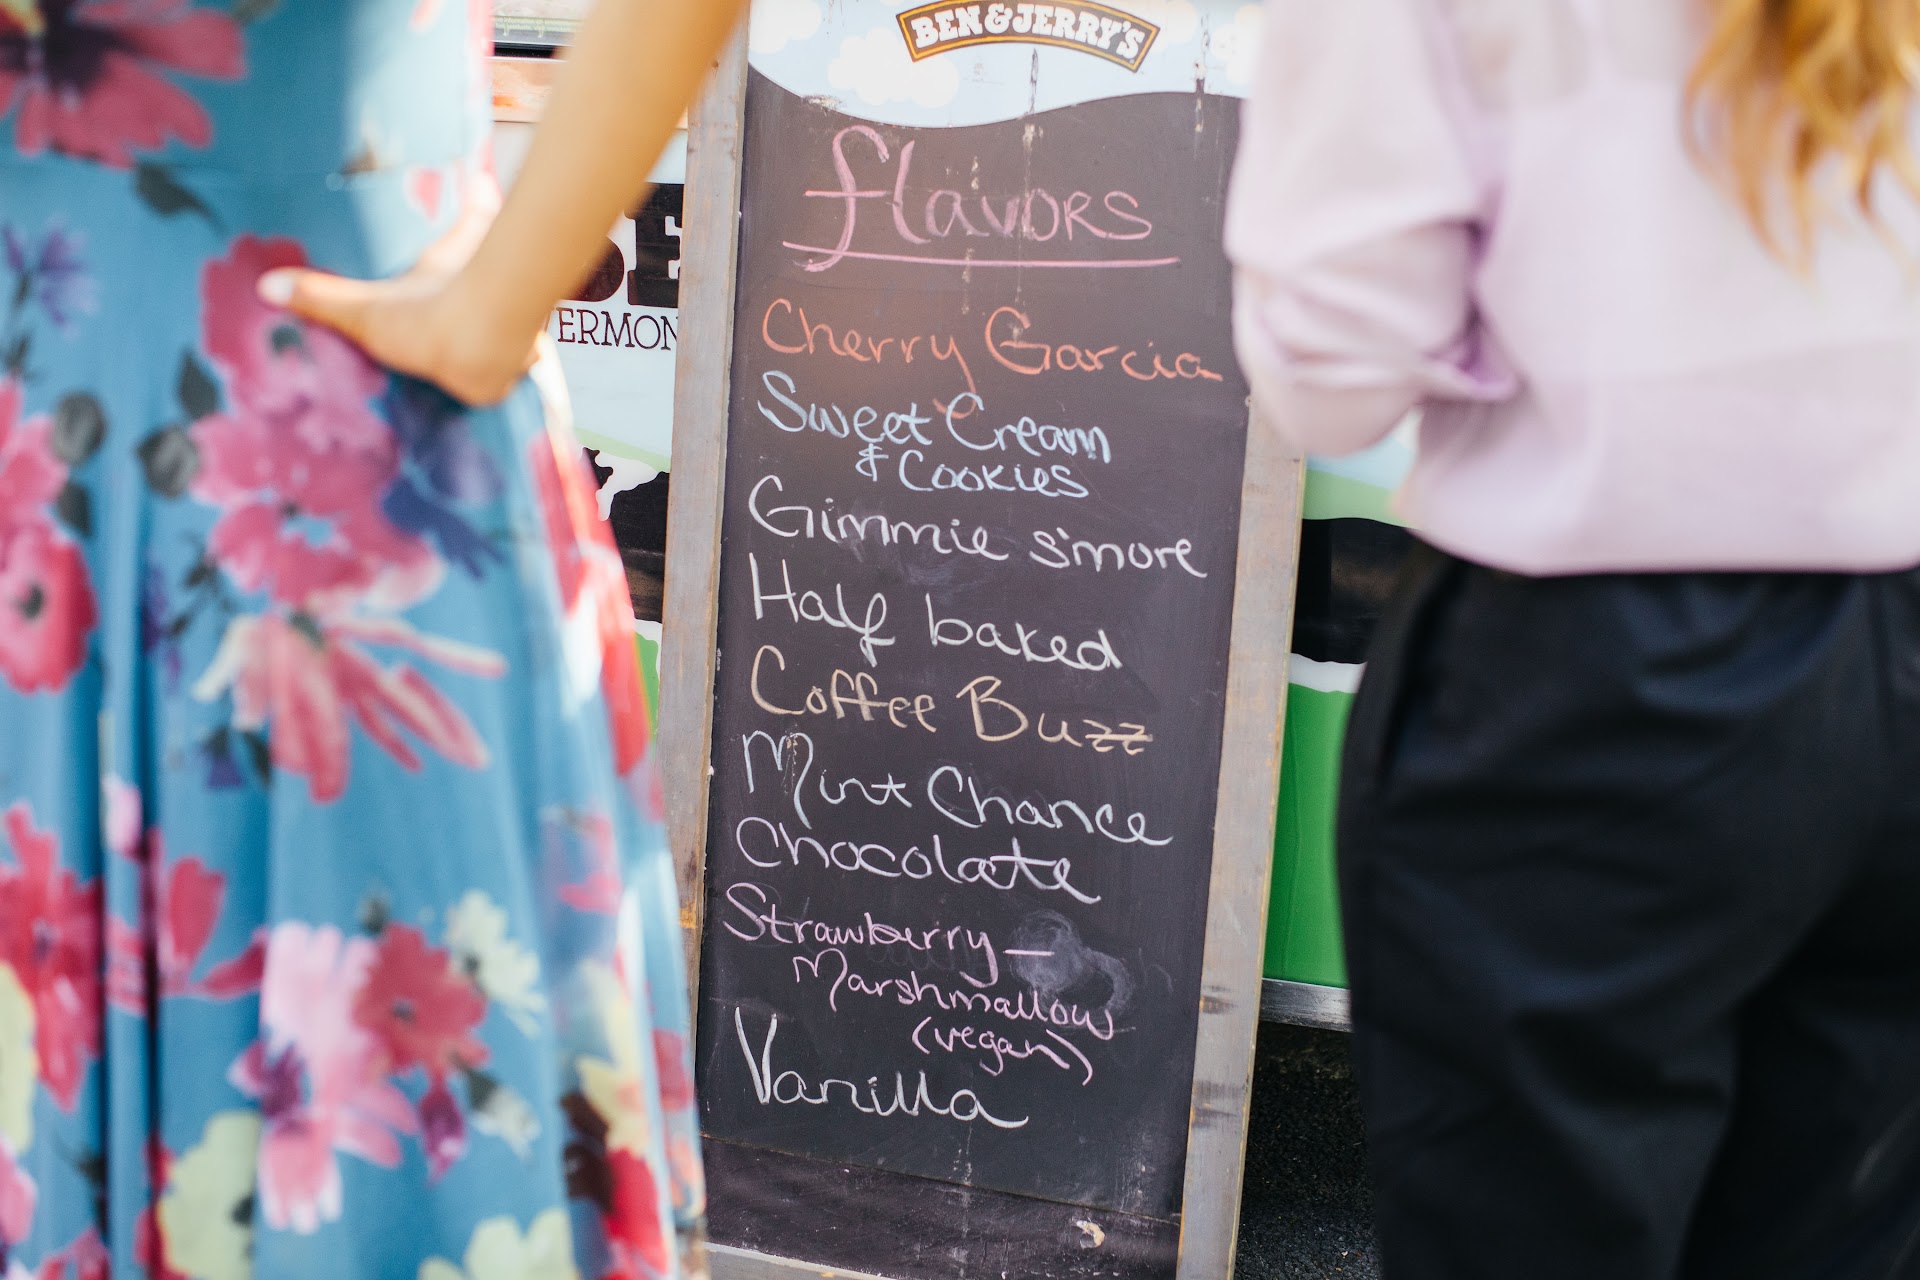 BEN & JERRY'S
flavors
Cherry Garcia
Sweet Cream
& Cookies
Gimmie s'more
Half baked
Coffee Buzz
Mint Chance
Chocolate
Strawberry –
Marshmallow
(vegan)
Vanilla